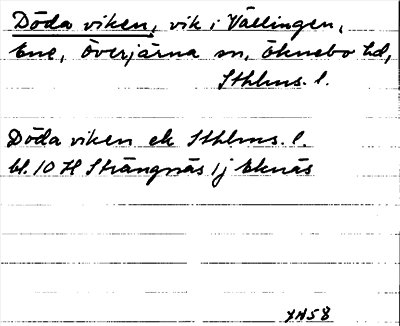 Döda viken, vik i Vällingen,
Ene, Överjärna sn, Öknebo hd,
Sthlms. l.
Döda viken ek Sthlms. l.
bl. 10 H Strängnäs 1j Eknäs